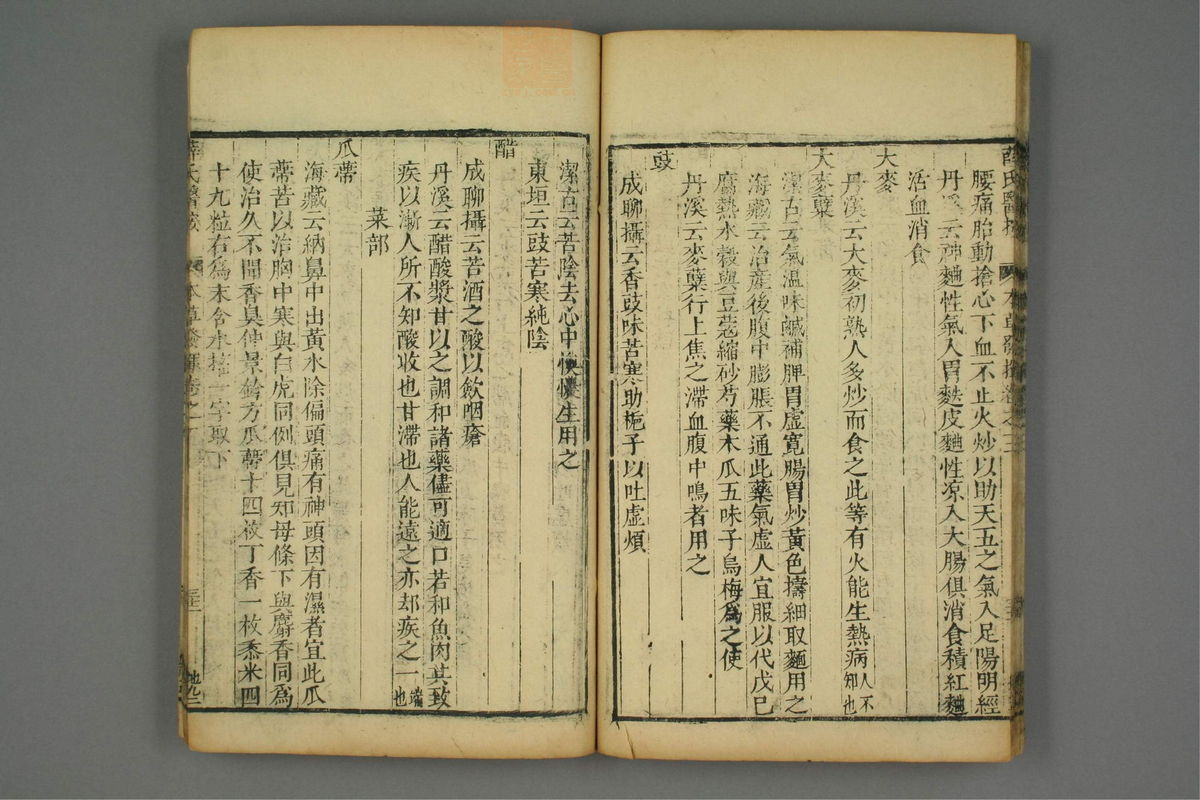 腰痛胎動搶心下血不止火炒以助天五之氣入足陽明經
丹溪云神麯性氣入胃麩皮麯性凉入大腸俱消食積紅麯
活血消食
大麥
丹溪云大麥初熟人多炒而食之此等有火能生熱病人不知也
大麥蘖
潔古云氣温味鹹補脾胃虛寬腸胃炒黃色擣細取麵用之
海藏云治産後腹中膨脹不通此藥氣虛人宜服以代戊巳
腐熟水榖與豆蔻縮砂芍藥木瓜五味子烏梅爲之使
丹溪云麥蘖行上焦之滯血腹中鳴者用之
豉
成聊攝云香豉味苦寒助梔子以吐虛煩
潔古云苦陰去心中懊憹生用之
東垣云豉苦寒純陰
醋
成聊攝云苦酒之酸以飲咽瘡
丹溪云醋酸漿甘以之調和諸藥儘可適口若和魚肉其致
疾以漸人所不知酸收也甘滯也人能遠之亦却疾之一端也
菜部
瓜蔕
海藏云納鼻中出黃水除偏頭痛有神頭因有濕者宜此瓜
蔕苦以治胸中寒與白虎同例俱見知母條下與麝香同爲
使治久不聞香臭仲景鈐方瓜蔕十四枚丁香一枚黍米四
十九粒右爲末含水搐一字取下